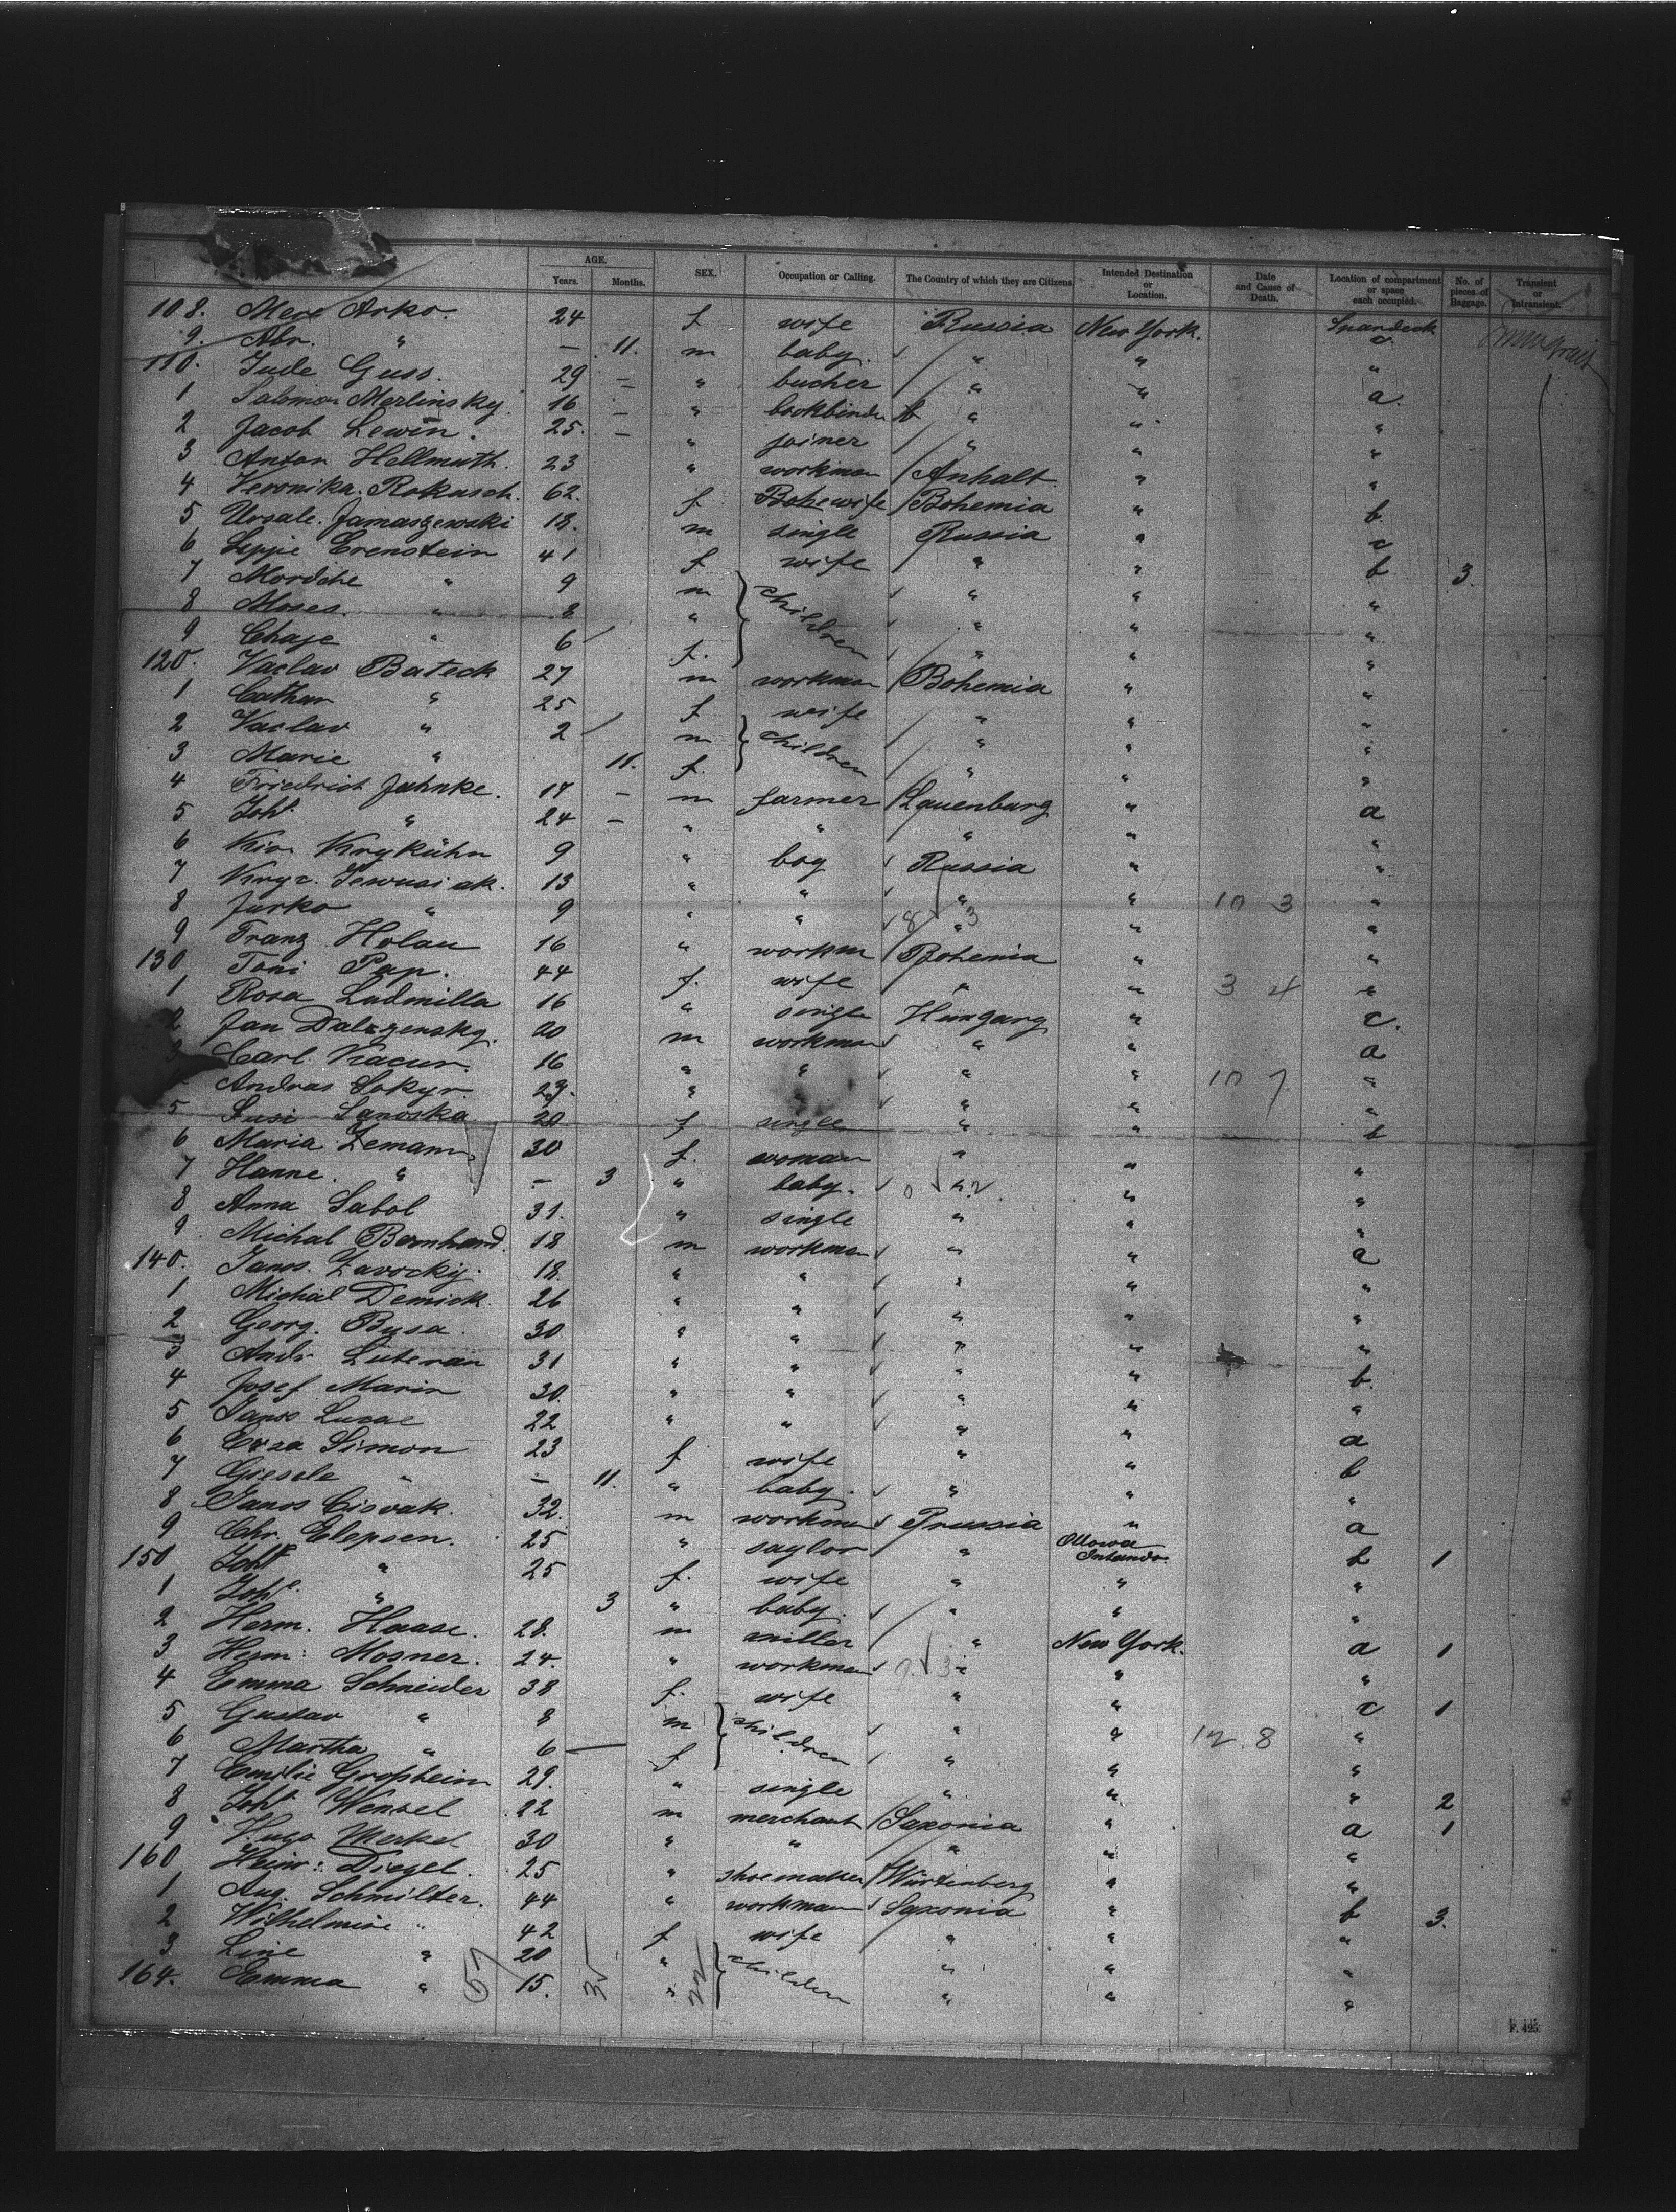 AGE. SEX. Occupation or Calling. The Country of which they are Citizens Intended Destination or Location. Date and Cause of Death. Location of compartment or space each occupied. No. of pieces of Baggage. Transient or Intransient.
Years. Months.
108. Arko. 24 f wife Russia New York.
9. Abr. " — 11. m baby. " " "
110. Jude Guss. 29 — " bucher " " "
1 Salomon Merlinsky. 16 — " " " a.
2 Jacob Lewin. 25. — " joiner " " "
3 Anton Hellmuth. 23 " workman Anhalt " "
4 Veronika Rokusch. 62. f. wife Bohemia " "
5 Ursale. Jamaszewski 18. m single Russia " b
6 Erenstein 41 f wife " " c
7 Mordche " 9 m children " " b 3.
8 Moses. " 8 " " " "
9 Chaje " 6 f. " " "
120. Vaclav Bateck 27 m workman Bohemia " "
1 Cathar " 25 f wife " " "
2 Vaclav " 2 m children " " "
3 Marie " 11. f. " " "
4 Friedrich Jahnke. 17 — m farmer Lauenburg " "
5 Joh. " 24 — " " " " a
6 9 " boy Russia " "
7 13 " " " " "
8 Jurko " 9 " " " " 10 3 "
9 Franz Holau 16 " workm Bohemia " "
130 Toni Pap. 44 f. wife " " "
1 Rosa Ludmilla 16 " single Hungary " 3 4 "
2 Jan 20 m workman " " c.
Carl Kacur. 16 " " " " a
Andras Sokyr. 23. " " " " 10 7 "
5 Susi Sanoska 20 f single " " "
6 Maria Zemann 30 f. woman " " b
7 Hanne. " — 3 " baby. " " "
8 Anna Sabol 31. " single " " "
9 Michal Bernhard. 18 m workman " " "
140. Janos. Zavocky. 18. " " " " a
1 Michal Demick. 26 " " " " "
2 Georg. Busa. 30 " " " " "
3 Andr Luteran 31 " " " " "
4 Josef Marin 30. " " " " b.
5 Janos Lucac 22 " " " " "
6 Simon 23 f wife " " a
7 Giesela " — 11. " baby. " " b
8 Janos Cisvak. 32. m workman Prussia " "
9 Chr. Elepsen. 25 " saylor " a
150 Joh. " 25 f. wife " " b 1
1 Joh. " 3 " baby. " " "
2 Herm. Haase. 28. m miller " New York. "
3 Herm: Mosner. 24. " workman " " a 1
4 Emma Schneider 38 f. wife " " "
5 Gustav " 8 m children " " c 1
6 Martha " 6 f " " 12. 8 "
7 Emilie 29. " single " " "
8 Joh. Wensel 22 m merchant Saxonia " " 2
9 Hugo Merkel 30 " " " " a 1
160 Heinr: Diegel. 25 " shoemaker Würtenberg " "
1 Aug. Schmilter. 44 " workman Saxonia " "
2 Wilhelmine " 42 f wife " " b 3.
3. Line " 20 " children " " "
164. Emma " 15. " " " "
57 35 22
F. 495.